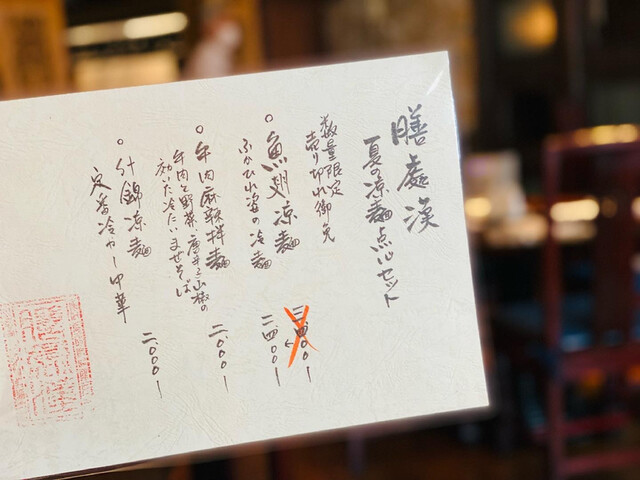 膳處漢
夏の涼麺点心セット
数量限定
売り切れ御免
○ 魚翅涼麺
ふかひれ姿の冷麺
三.四〇〇ー
二.四〇〇ー
○ 牛肉麻辣拌麺
牛肉と野菜、唐辛子山椒の
効いた冷たいまぜそば
二.〇〇〇ー
○ 什錦涼麺
定番冷やし中華
二.〇〇〇ー